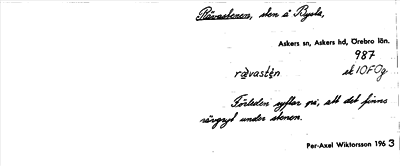 Rävastenen, sten å Rysta,
Askers sn, Askers hd, Örebro län.
987
ravastén ek 10F0g
Förleden syftar på, att det finns
rävgryt under stenen.
Per-Axel Wiktorsson 1963